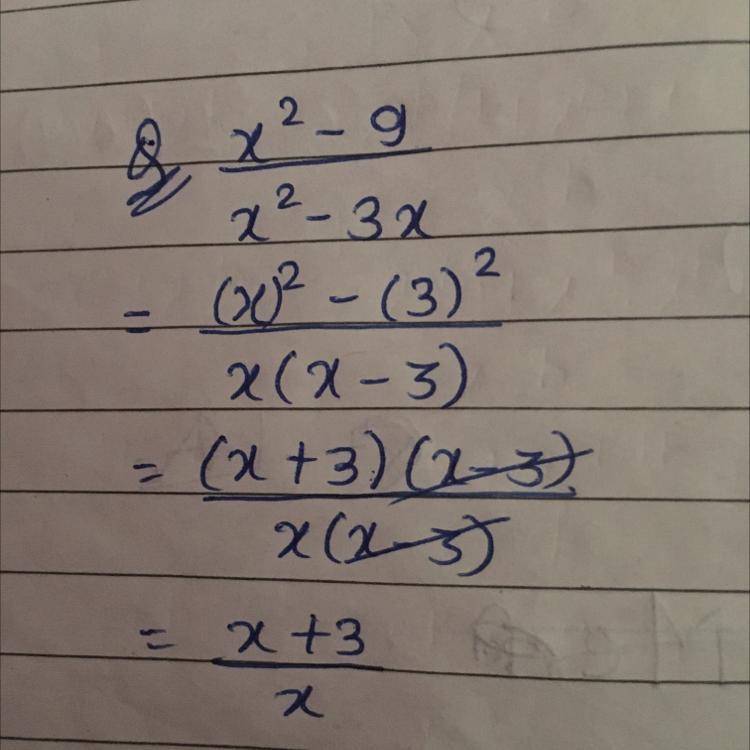 Q x² - 9
x² - 3x
= (x)² - (3)²
x(x - 3)
= (x + 3)(x - 3)
x(x - 3)
= x + 3
x